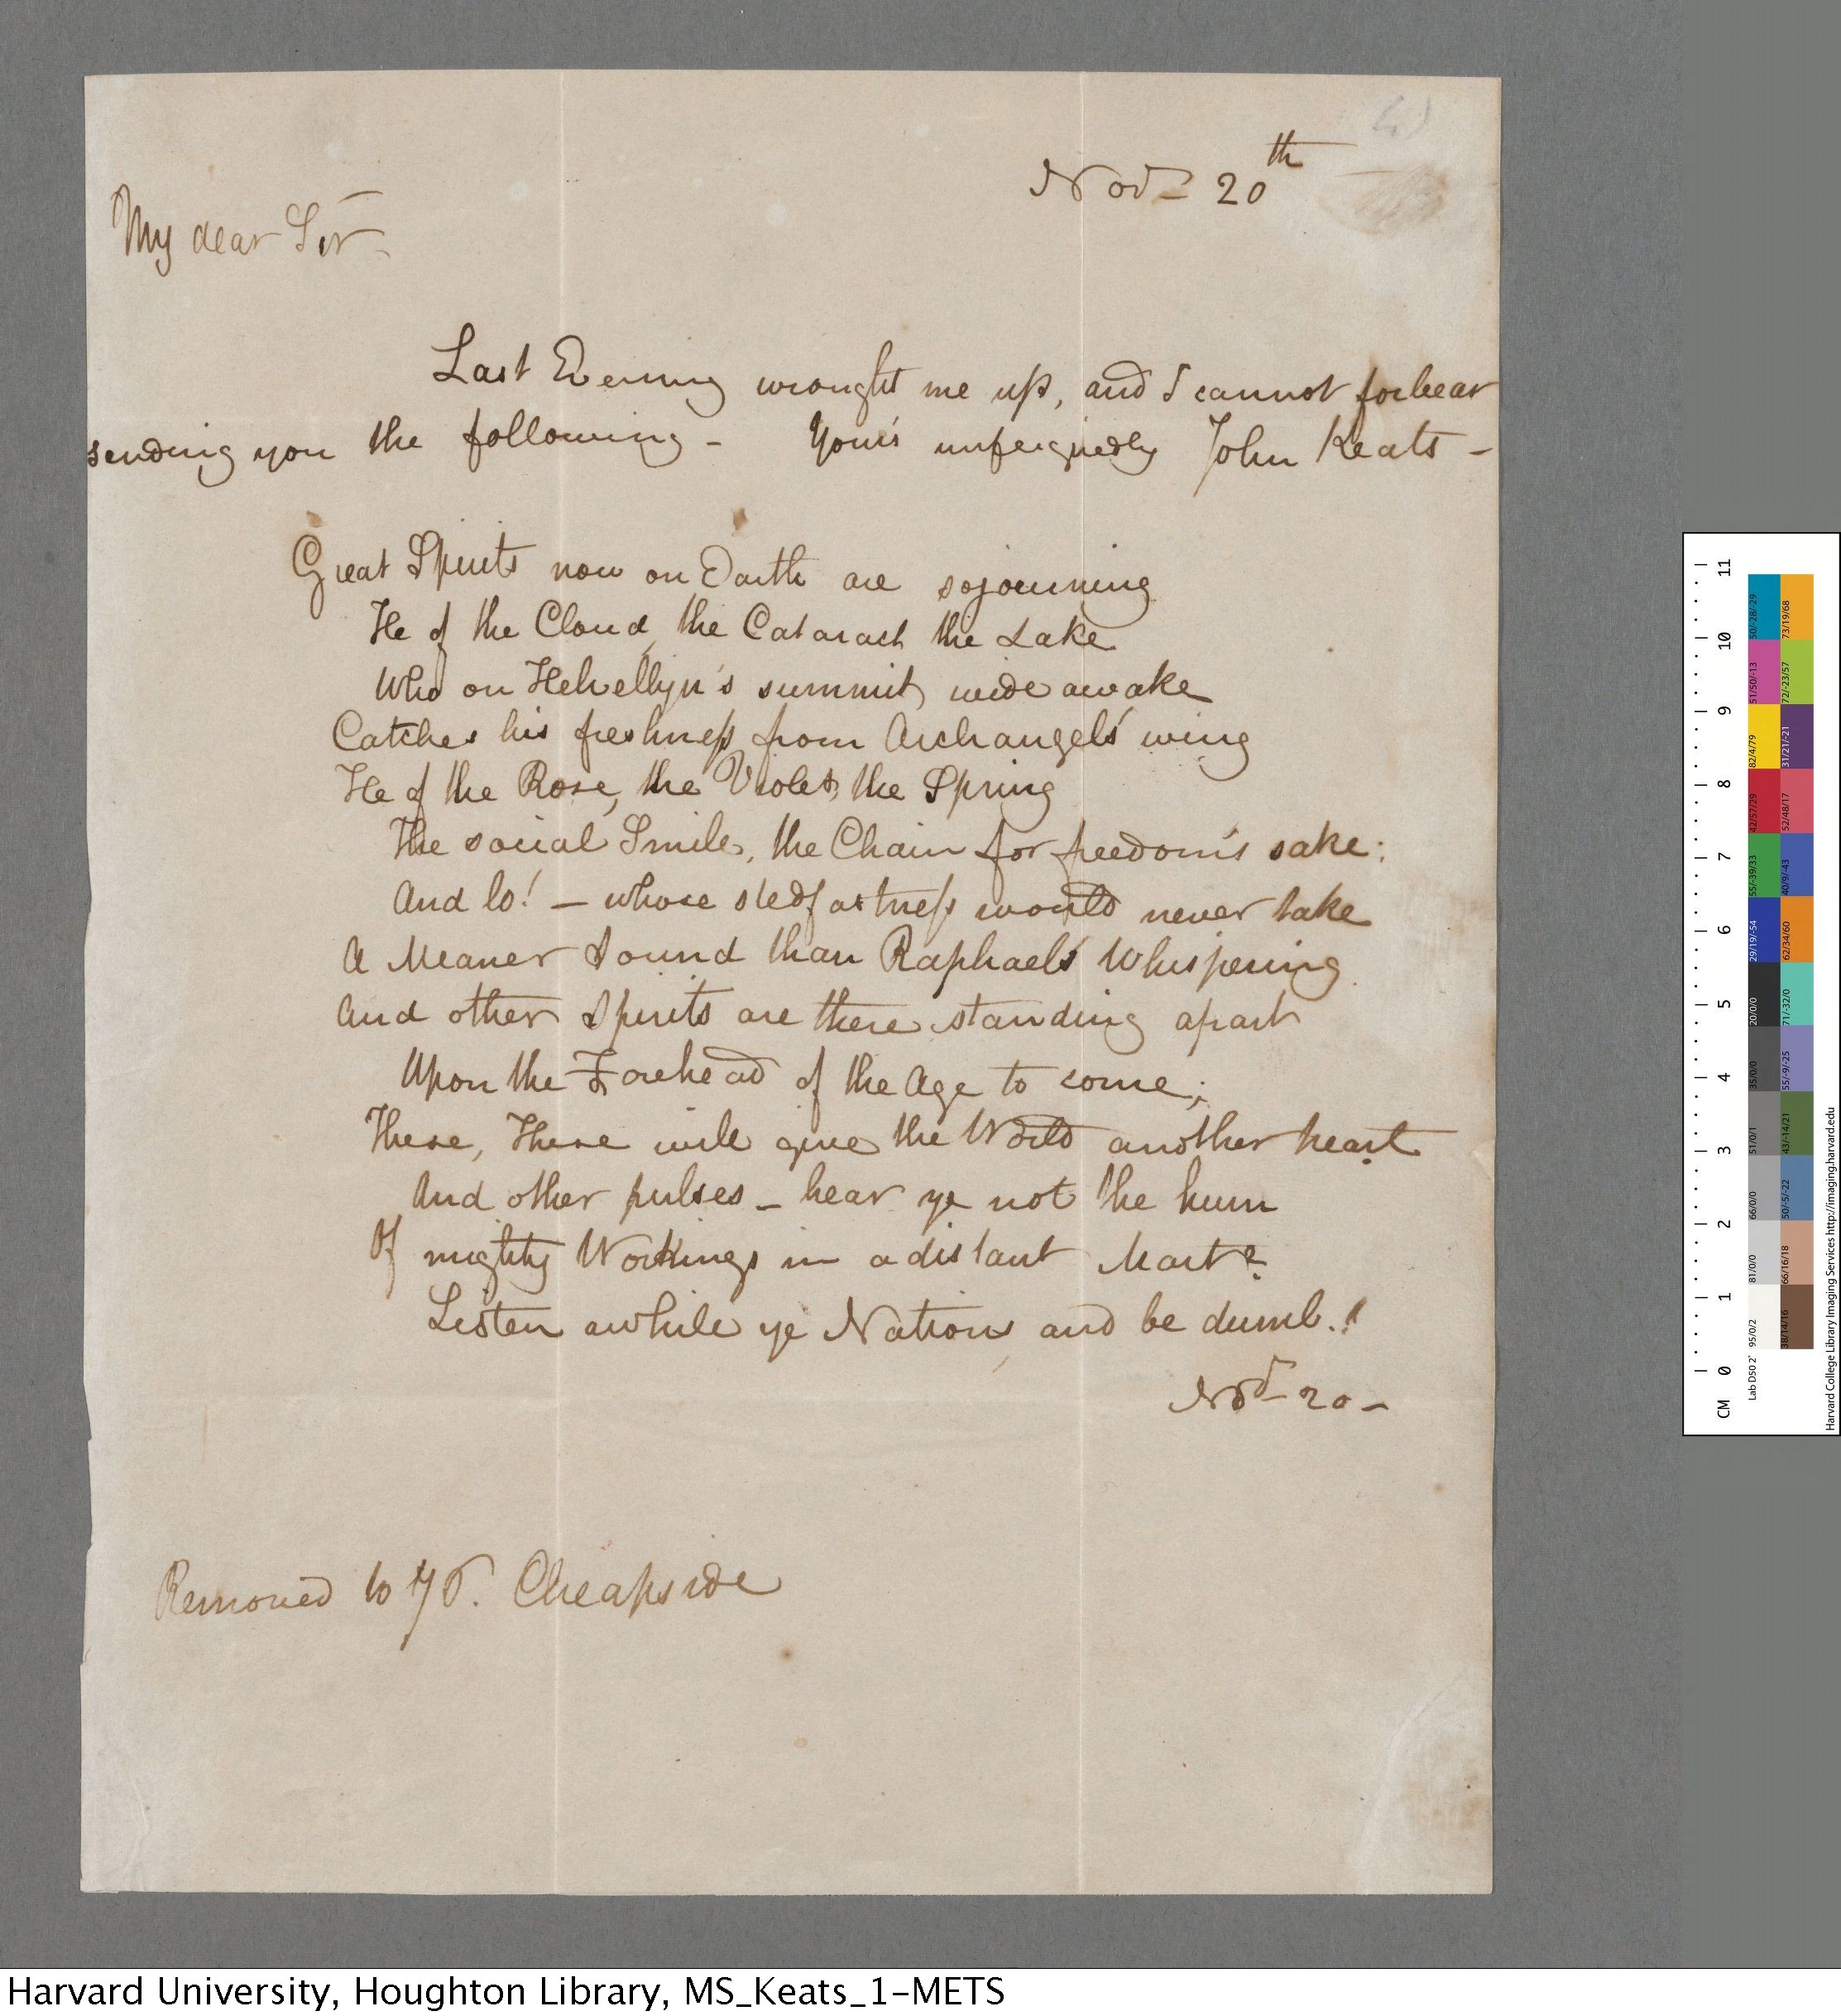 Nov- 20th
My dear Sir-
Last Evening wrought me up, and I cannot forbear
sending you the following - Your's unfeignedly John Keats -
Great Spirits now on Earth are sojourning
He of the Cloud, the Cataract the Lake
Who on Helvellyn's summit wide awake
Catches his freshness from Archangel's wing
He of the Rose, the Violet, the Spring
The social Smile, the Chain for freedom's sake:
And lo! - whose stedfastness would never take
A Meaner Sound than Raphael's Whispering
And other Spirits are there standing apart
Upon the Forehead of the Age to come;
These, These will give the World another heart
And other pulses - hear ye not the hum
Of mighty Workings in a distant Mart?
Listen awhile ye Nations, and be dumb.!
Nov- 20-
Removed to 76. Cheapside
CM 0 1 2 3 4 5 6 7 8 9 10 11
Harvard College Library Imaging Services http://imaging.harvard.edu
Harvard University, Houghton Library, MS_Keats_1-METS